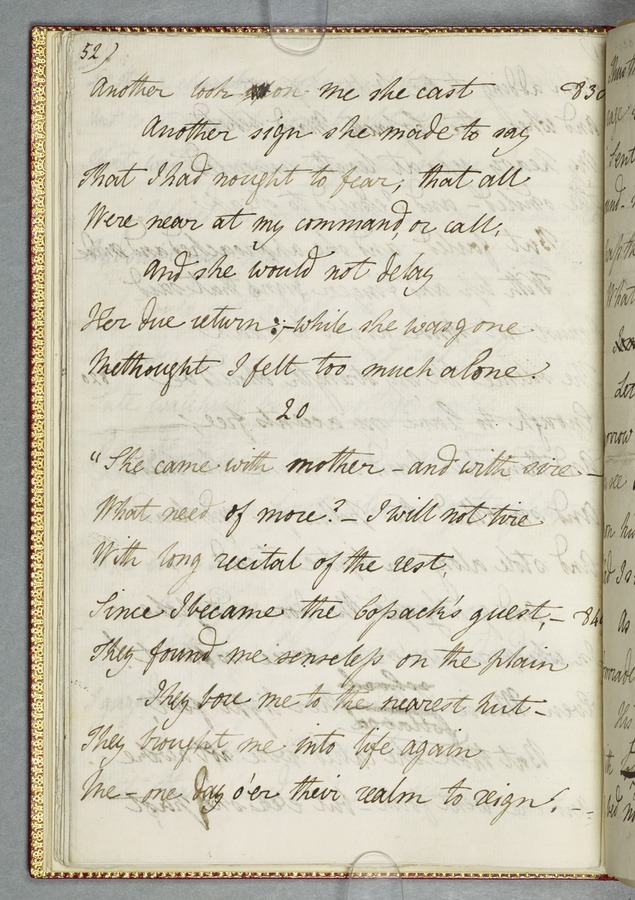 52)
Another look on me she cast 830
Another sign she made to say
That I had nought to fear, that all
Were near at my command, or call,
And she would not delay
Her due return:—while she was gone
Methought I felt too much alone.
20
"She came with mother – and with sire –
What need of more? – I will not tire
With long recital of the rest,
Since I became the Cossack's guest, – 840
They found me senseless on the plain
They bore me to the nearest hut –
They brought me into life again
Me – one day o'er their realm to reign! – –